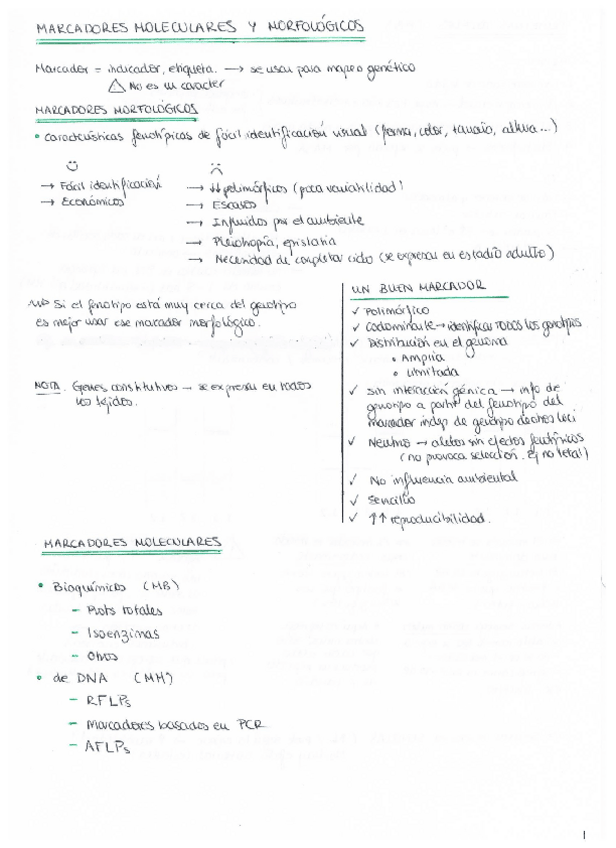 MARCADORES MOLECULARES Y MORFOLÓGICOS
Marcador = indicador, etiqueta. → se usan para mapeo genético
△ No es un caracter
MARCADORES MORFOLÓGICOS
• características fenotípicas de fácil identificación visual (forma, color, tamaño, altura...)
→ Fácil identificación
→ Económicos
→ ↓↓ polimórficos (poca variabilidad)
→ Escasos
→ Influidos por el ambiente
→ Pleiotropía, epistasia
→ Necesidad de completar ciclo (se expresa en estadio adulto)
Si el fenotipo está muy cerca del genotipo
es mejor usar ese marcador morfológico.
NOTA. Genes constitutivos → se expresan en todos
los tejidos.
UN BUEN MARCADOR
✓ Polimórfico
✓ Codominante → identificar TODOS los genotipos
✓ Distribución en el genoma
• Amplia
• Limitada
✓ Sin interacción génica → info de
genotipo a partir del fenotipo del
marcador indep de genotipo de otros loci
✓ Neutro → alelos sin efectos fenotípicos
(no provoca selección. Ej no letal)
✓ No influencia ambiental
✓ Sencillo
✓ ↑↑ reproducibilidad.
MARCADORES MOLECULARES
• Bioquímicos (MB)
- Prots totales
- Isoenzimas
- Otros
• de DNA (MM)
- RFLPs
- Marcadores basados en PCR
- AFLPs
1